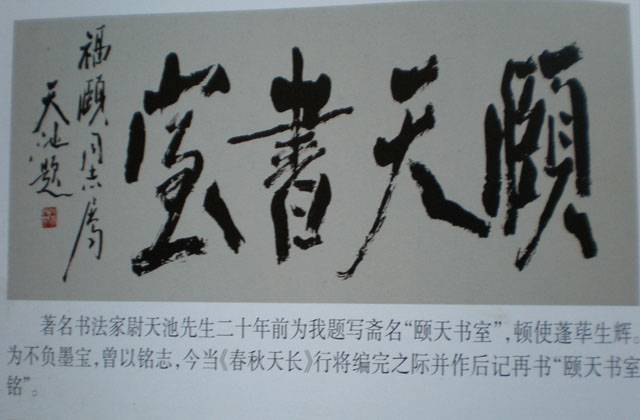 頤天書室
福頤同志属
天池题
著名书法家尉天池先生二十年前为我题写斋名“颐天书室”,顿使蓬荜生辉。
为不负墨宝,曾以铭志,今当《春秋天长》行将编完之际并作后记再书“颐天书室
铭”。